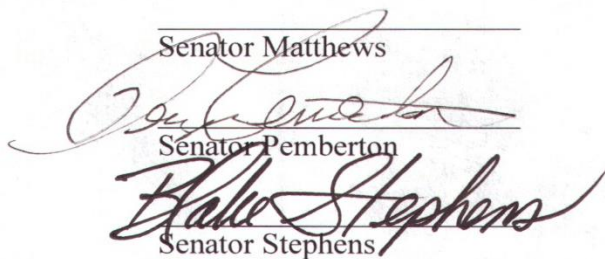 Senator Matthews
Senator Pemberton
Blake Stephens
Senator Stephens